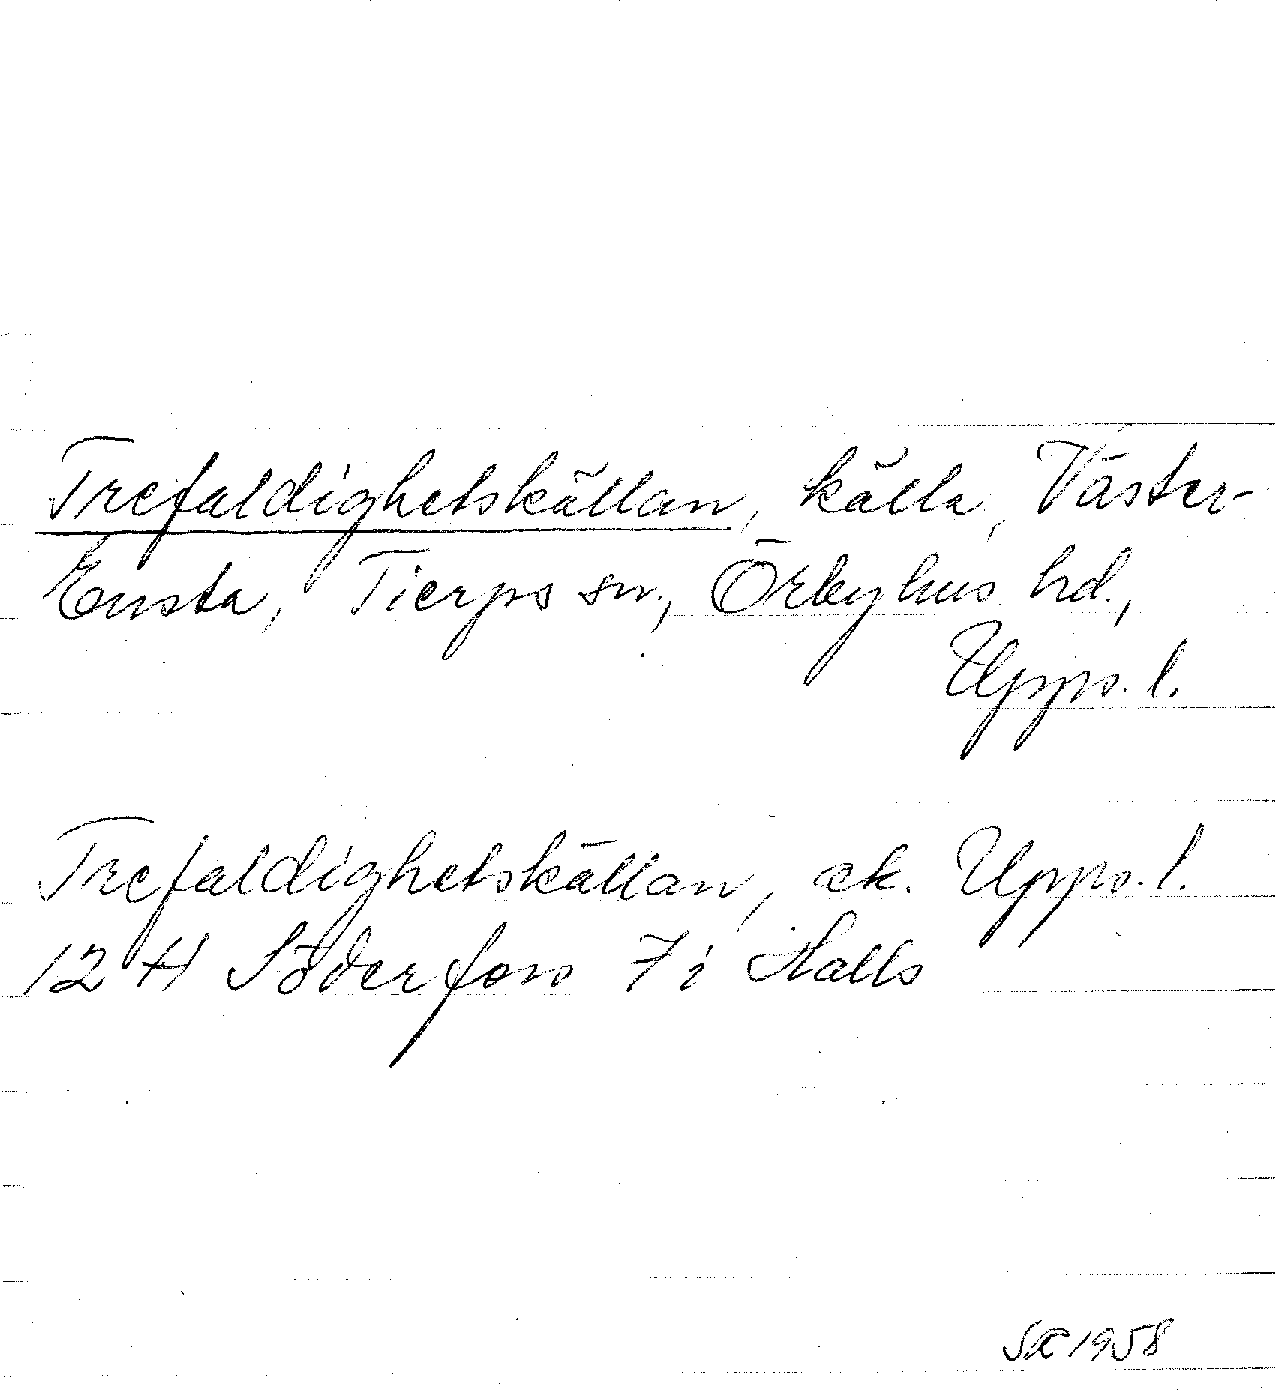 Trefaldighetskällan, källa, Väster-
Ensta, Tierps sn, Örbyhus hd.,
Upps. l.
Trefaldighetskällan, ek. Upps. l.
12 H Söderfors 7 i Halls
SÆ 1958